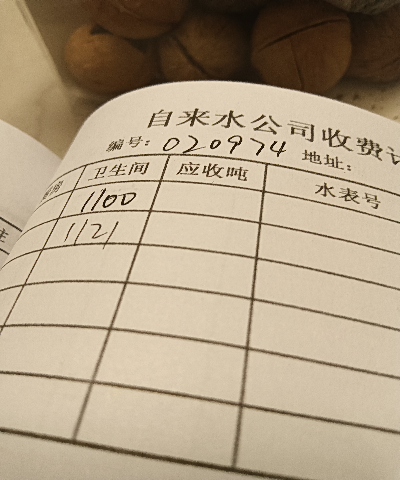 自来水公司收费
编号: 020974 地址:
卫生间 应收吨 水表号
1100
1121
注